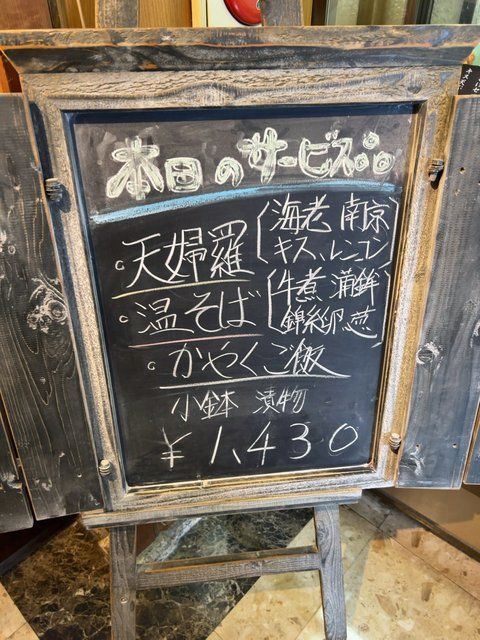 本日のサービス
天婦羅(海老 南京
キス、レンコン)
温そば(牛煮 蒲鉾
錦糸卵、葱)
かやくご飯
小鉢 漬物
¥1,430